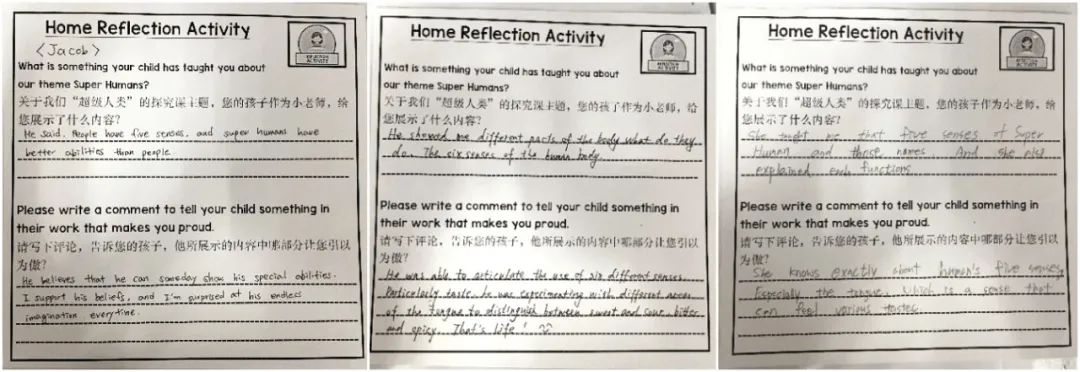 Home Reflection Activity
<Jacob>
REFLECTION
ACTIVITY
What is something your child has taught you about
our theme Super Humans?
关于我们“超级人类”的探究课主题，您的孩子作为小老师，给
您展示了什么内容？
He said. People have five senses, and super humans have
better abilities than people
Please write a comment to tell your child something in
their work that makes you proud.
请写下评论，告诉您的孩子，他所展示的内容中哪部分让您引以
为傲？
He believes that he can someday show his special abilities.
I support his beliefs, and I'm surprised at his endless
imagination everytime.
Home Reflection Activity
REFLECTION
ACTIVITY
What is something your child has taught you about
our theme Super Humans?
关于我们“超级人类”的探究课主题，您的孩子作为小老师，给
您展示了什么内容？
He showed me different parts of the body what do they
do. The six senses of the human body.
Please write a comment to tell your child something in
their work that makes you proud.
请写下评论，告诉您的孩子，他所展示的内容中哪部分让您引以
为傲？
He was able to articulate the use of six different senses.
Particularly taste. he was experimenting with different areas
of the tongue to distinguish between sweet and sour, bitter
and spicy. That's life!
Home Reflection Activity
REFLECTION
ACTIVITY
What is something your child has taught you about
our theme Super Humans?
关于我们“超级人类”的探究课主题，您的孩子作为小老师，给
您展示了什么内容？
She taught me that five senses of Super
Human and those names. And she also
explained each functions
Please write a comment to tell your child something in
their work that makes you proud.
请写下评论，告诉您的孩子，他所展示的内容中哪部分让您引以
为傲？
She knows exactly about human's five senses
Especially the tongue, which is a sense that
can feel various tastes